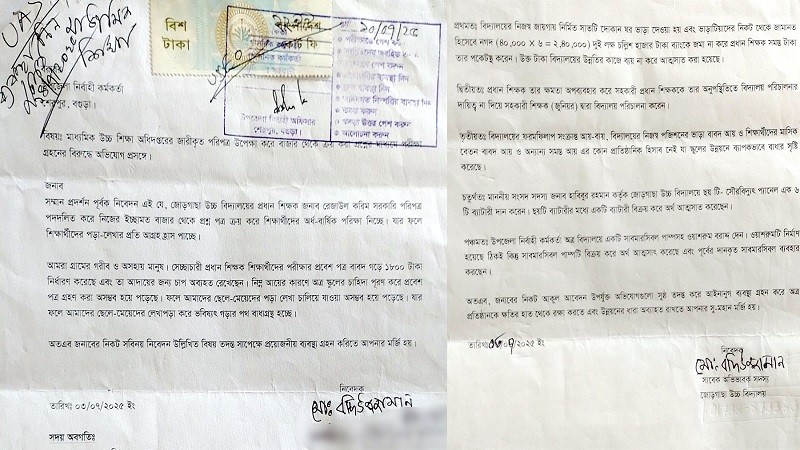 বিশ
টাকা
২০/০৭/২৫
উপজেলা নির্বাহী অফিসার
শেরপুর, বগুড়া।
নির্বাহী কর্মকর্তা
বগুড়া।
বিষয়ঃ মাধ্যমিক উচ্চ শিক্ষা অধিদপ্তরের জারীকৃত পরিপত্র উপেক্ষা করে বাজার থেকে ক্রয় করা প্রশ্নের মাধ্যমে পরীক্ষা
গ্রহনের বিরুদ্ধে অভিযোগ প্রসঙ্গে।
জনাব
সম্মান প্রদর্শন পূর্বক নিবেদন এই যে, জোড়গাছা উচ্চ বিদ্যালয়ের প্রধান শিক্ষক জনাব রেজাউল করিম সরকারি পরিপত্র
পদদলিত করে নিজের ইচ্ছামত বাজার থেকে প্রশ্ন পত্র ক্রয় করে শিক্ষার্থীদের অর্ধ-বার্ষিক পরিক্ষা নিচ্ছে। যার ফলে
শিক্ষার্থীদের পড়া-লেখার প্রতি আগ্রহ হ্রাস পাচ্ছে।
আমরা গ্রামের গরীব ও অসহায় মানুষ। সেচ্ছাচারী প্রধান শিক্ষক শিক্ষার্থীদের পরীক্ষার প্রবেশ পত্র বাবদ গড়ে ১৮০০ টাকা
নির্ধারণ করেছে এবং তা আদায়ের জন্য চাপ অব্যহত রেখেছেন। নিম্ন আয়ের কারণে অত্র স্কুলের চাহিদা পূরণ করে প্রবেশ
পত্র গ্রহণ করা অসম্ভব হয়ে পড়েছে। ফলে আমাদের ছেলে-মেয়েদের পড়া লেখা চালিয়ে যাওয়া অসম্ভব হয়ে পড়েছে। যার
ফলে আমাদের ছেলে-মেয়েদের লেখাপড়া করে ভবিষ্যৎ গড়ার পথ বাধাগ্রস্থ হচ্ছে।
অতএব জনাবের নিকট সবিনয় নিবেদন উল্লিখিত বিষয় তদন্ত সাপেক্ষে প্রয়োজনীয় ব্যবস্থা গ্রহন করিতে আপনার মর্জি হয়।
নিবেদক
মোঃ বদিউজ্জামান
তারিখঃ ০৩/০৭/২০২৫ ইং
সদয় অবগতিঃ
প্রথমতঃ বিদ্যালয়ের নিজস্ব জায়গায় নির্মিত সাতটি দোকান ঘর ভাড়া দেওয়া হয় এবং ভাড়াটিয়াদের নিকট থেকে জামানত
হিসেবে নগদ (৪০,০০০ × ৬ = ২,৪০,০০০) দুই লক্ষ চল্লিশ হাজার টাকা ব্যাংকে জমা না করে প্রধান শিক্ষক সমস্ত টাকা
তার পকেটস্থ করেন। উক্ত টাকা বিদ্যালয়ের উন্নতির কাজে ব্যয় না করে আত্মসাত করা হয়েছে।
দ্বিতীয়তঃ প্রধান শিক্ষক তার ক্ষমতা অপব্যবহার করে সহকারী প্রধান শিক্ষককে তার অনুপস্থিতিতে বিদ্যালয় পরিচালনার
দায়িত্ব না দিয়ে সহকারী শিক্ষক (জুনিয়র) দ্বারা বিদ্যালয় পরিচালনা করেন।
তৃতীয়তঃ বিদ্যালয়ের ফরমফিলাপ সংক্রান্ত আয়-ব্যয়, বিদ্যালয়ের নিজস্ব পজিশনের ভাড়া বাবদ আয় ও শিক্ষার্থীদের মাসিক
বেতন বাবদ আয় ও অন্যান্য সমস্ত আয় এর কোন প্রাতিষ্ঠানিক হিসাব নেই যা স্কুলের উন্নয়নে ব্যাপকভাবে বাধার সৃষ্টি
করেছে।
চতুর্থতঃ মাননীয় সংসদ সদস্য জনাব হাবিবুর রহমান কর্তৃক জোড়গাছা উচ্চ বিদ্যালয়ে ছয় টি- সৌরবিদ্যুৎ প্যানেল এক ৬
টি ব্যাটারী দান করেন। ছয়টি ব্যাটারীর মধ্যে একটি ব্যাটারী বিক্রয় করে অর্থ আত্মসাত করেছেন।
পঞ্চমতঃ উপজেলা নির্বাহী কর্মকর্তা অত্র বিদ্যালয়ে একটি সাবমারসিবল পাম্পসহ ওয়াশরুম বরাদ্দ দেন। ওয়াশরুমটি নির্মাণ
হয়েছে ঠিকই কিন্তু সাবমারসিবল পাম্পটি বিক্রয় করে অর্থ আত্মসাৎ করেছে এবং পূর্বের দানকৃত সাবমারসিবল ব্যবহার
করছেন।
অতএব, জনাবের নিকট আকুল আবেদন উপর্যুক্ত অভিযোগগুলো সুষ্ঠ তদন্ত করে আইনানুগ ব্যবস্থা গ্রহন করে অত্র
প্রতিষ্ঠানকে ক্ষতির হাত থেকে রক্ষা করতে এবং উন্নয়নের ধারা অব্যাহত রাখতে আপনার সু-মহান মর্জি হয়।
তারিখঃ ২০২৫ ইং
নিবেদক
মোঃ বদিউজ্জামান
সাবেক অভিভাবক সদস্য
জোড়গাছা উচ্চ বিদ্যালয়